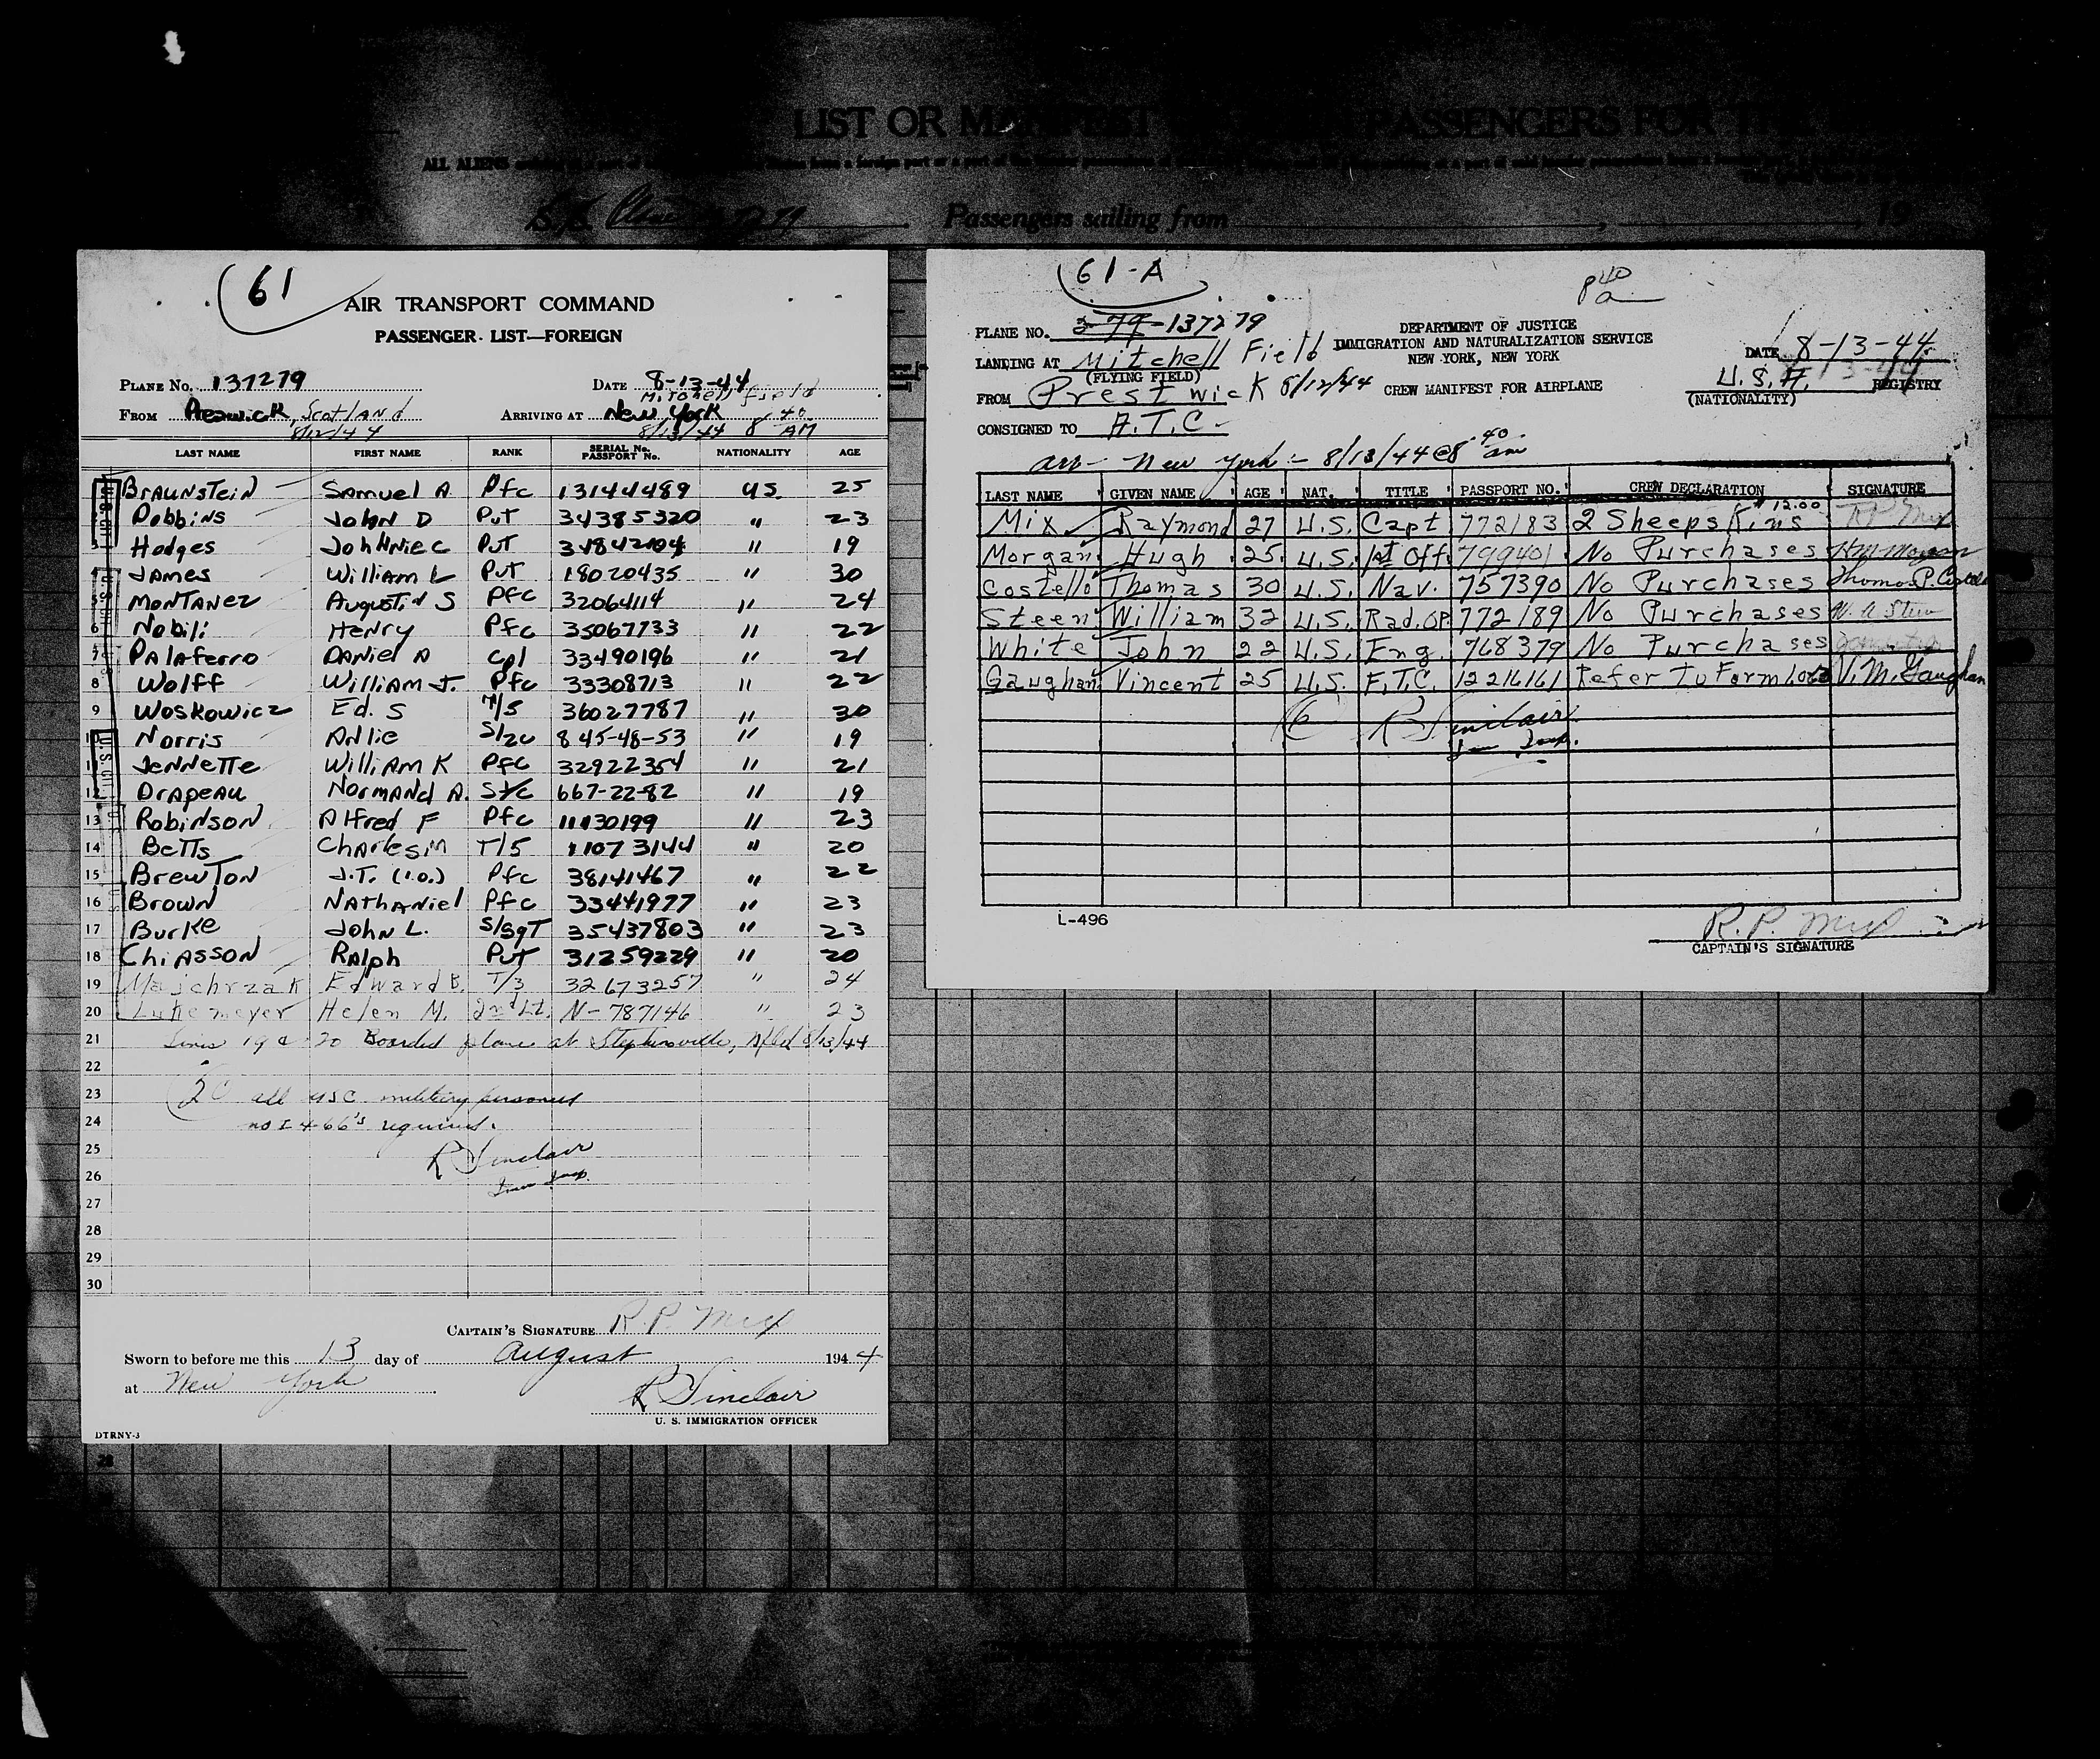 LIST OR MANIFEST PASSENGERS FOR THE
ALL ALIENS
Passengers sailing from 19
61
AIR TRANSPORT COMMAND
PASSENGER LIST—FOREIGN
PLANE No. 137279 DATE 8-13-44
Mitchell Field
FROM Prestwick Scotland ARRIVING AT New York 8 40 AM
8/12/44 8/13/44
LAST NAME FIRST NAME RANK SERIAL No. PASSPORT No. NATIONALITY AGE
Braunstein Samuel A Pfc 13144489 US 25
Dobbins John D Pvt 34385320 " 23
3 Hodges Johnnie C Pvt 34842104 " 19
4 James William L Pvt 18020435 " 30
5 Montanez Augustin S Pfc 32064114 " 24
6 Nobili Henry Pfc 35067733 " 22
7 Palaferro Daniel A Cpl 33490196 " 21
8 Wolff William J. Pfc 33308713 " 22
9 Woskowicz Ed. S T/5 36027787 " 30
10 Norris Arlie S/2c 845-48-53 " 19
11 Jennette William K Pfc 32922354 " 21
12 Drapeau Normand A. S/c 667-22-82 " 19
13 Robinson Alfred F Pfc 11130199 " 23
14 Betts Charles M T/5 11073144 " 20
15 Brewton J.T. (I.O.) Pfc 38141467 " 22
16 Brown Nathaniel Pfc 33441977 " 23
17 Burke John L. S/Sgt 35437803 " 23
18 Chiasson Ralph Pvt 31259229 " 20
19 Majchrzak Edward B. T/3 32673257 " 24
20 Lukemeyer Helen M. 2nd Lt. N-787146 " 23
21 Lines 19 & 20 Boarded plane at Stephenville, Nfld 8/13/44
22
23 20 all USC military personnel
24 no I 466's required.
25 R Sinclair
26 Imm Insp.
27
28
29
30
CAPTAIN'S SIGNATURE R.P. Mix
Sworn to before me this 13 day of August 1944
at New York R Sinclair
U. S. IMMIGRATION OFFICER
DTRNY-3
28
61-A
8 40 a
PLANE NO. 279-137279
DEPARTMENT OF JUSTICE
IMMIGRATION AND NATURALIZATION SERVICE
NEW YORK, NEW YORK
DATE 8-13-44
LANDING AT Mitchell Field
(FLYING FIELD)
U.S.A. REGISTRY
(NATIONALITY)
FROM Prestwick 8/12/44 CREW MANIFEST FOR AIRPLANE
CONSIGNED TO A.T.C.
Arr - New York - 8/13/44 @ 8 40 am
LAST NAME GIVEN NAME AGE NAT. TITLE PASSPORT NO. CREW DECLARATION SIGNATURE
Mix Raymond 27 U.S. Capt 772183 2 Sheepskins $12.00 R P Mix
Morgan Hugh 25 U.S. 1st Off. 799401 No Purchases H M Morgan
Costello Thomas 30 U.S. Nav. 757390 No Purchases Thomas P. Costello
Steen William 32 U.S. Rad.OP 772189 No Purchases W. A. Steen
White John 22 U.S. Eng. 768379 No Purchases
Gaughan Vincent 25 U.S. F.T.C. 12216161 Refer To Form V.M. Gaughan
6 R Sinclair
Imm Insp.
L-496
R.P. Mix
CAPTAIN'S SIGNATURE